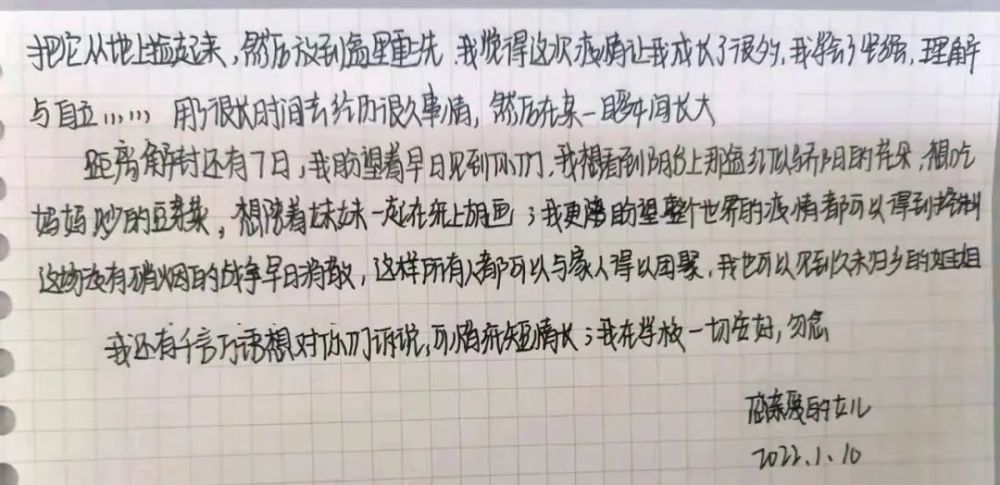 把它从地上捡起来，然后放到盆里重洗.我觉得这次疫情让我成长了很多,我学会了坚强,理解
与自立…… 用了很长时间去经历很久事情，然后在某一瞬间长大
距离解封还有7日,我盼望着早日见到你们,我想看到阳台上那盆红似骄阳的花朵,想吃
妈妈炒的豆芽菜，想陪着妹妹一起在纸上胡画；我更希望整个世界的疫情都可以得到控制
这场没有硝烟的战争早日消散，这样所有人都可以与家人得以团聚,我也可以见到久未归乡的姐姐
我还有千言万语想对你们诉说,可惜纸短情长；我在学校一切安好,勿念
亲爱的女儿
2022.1.10